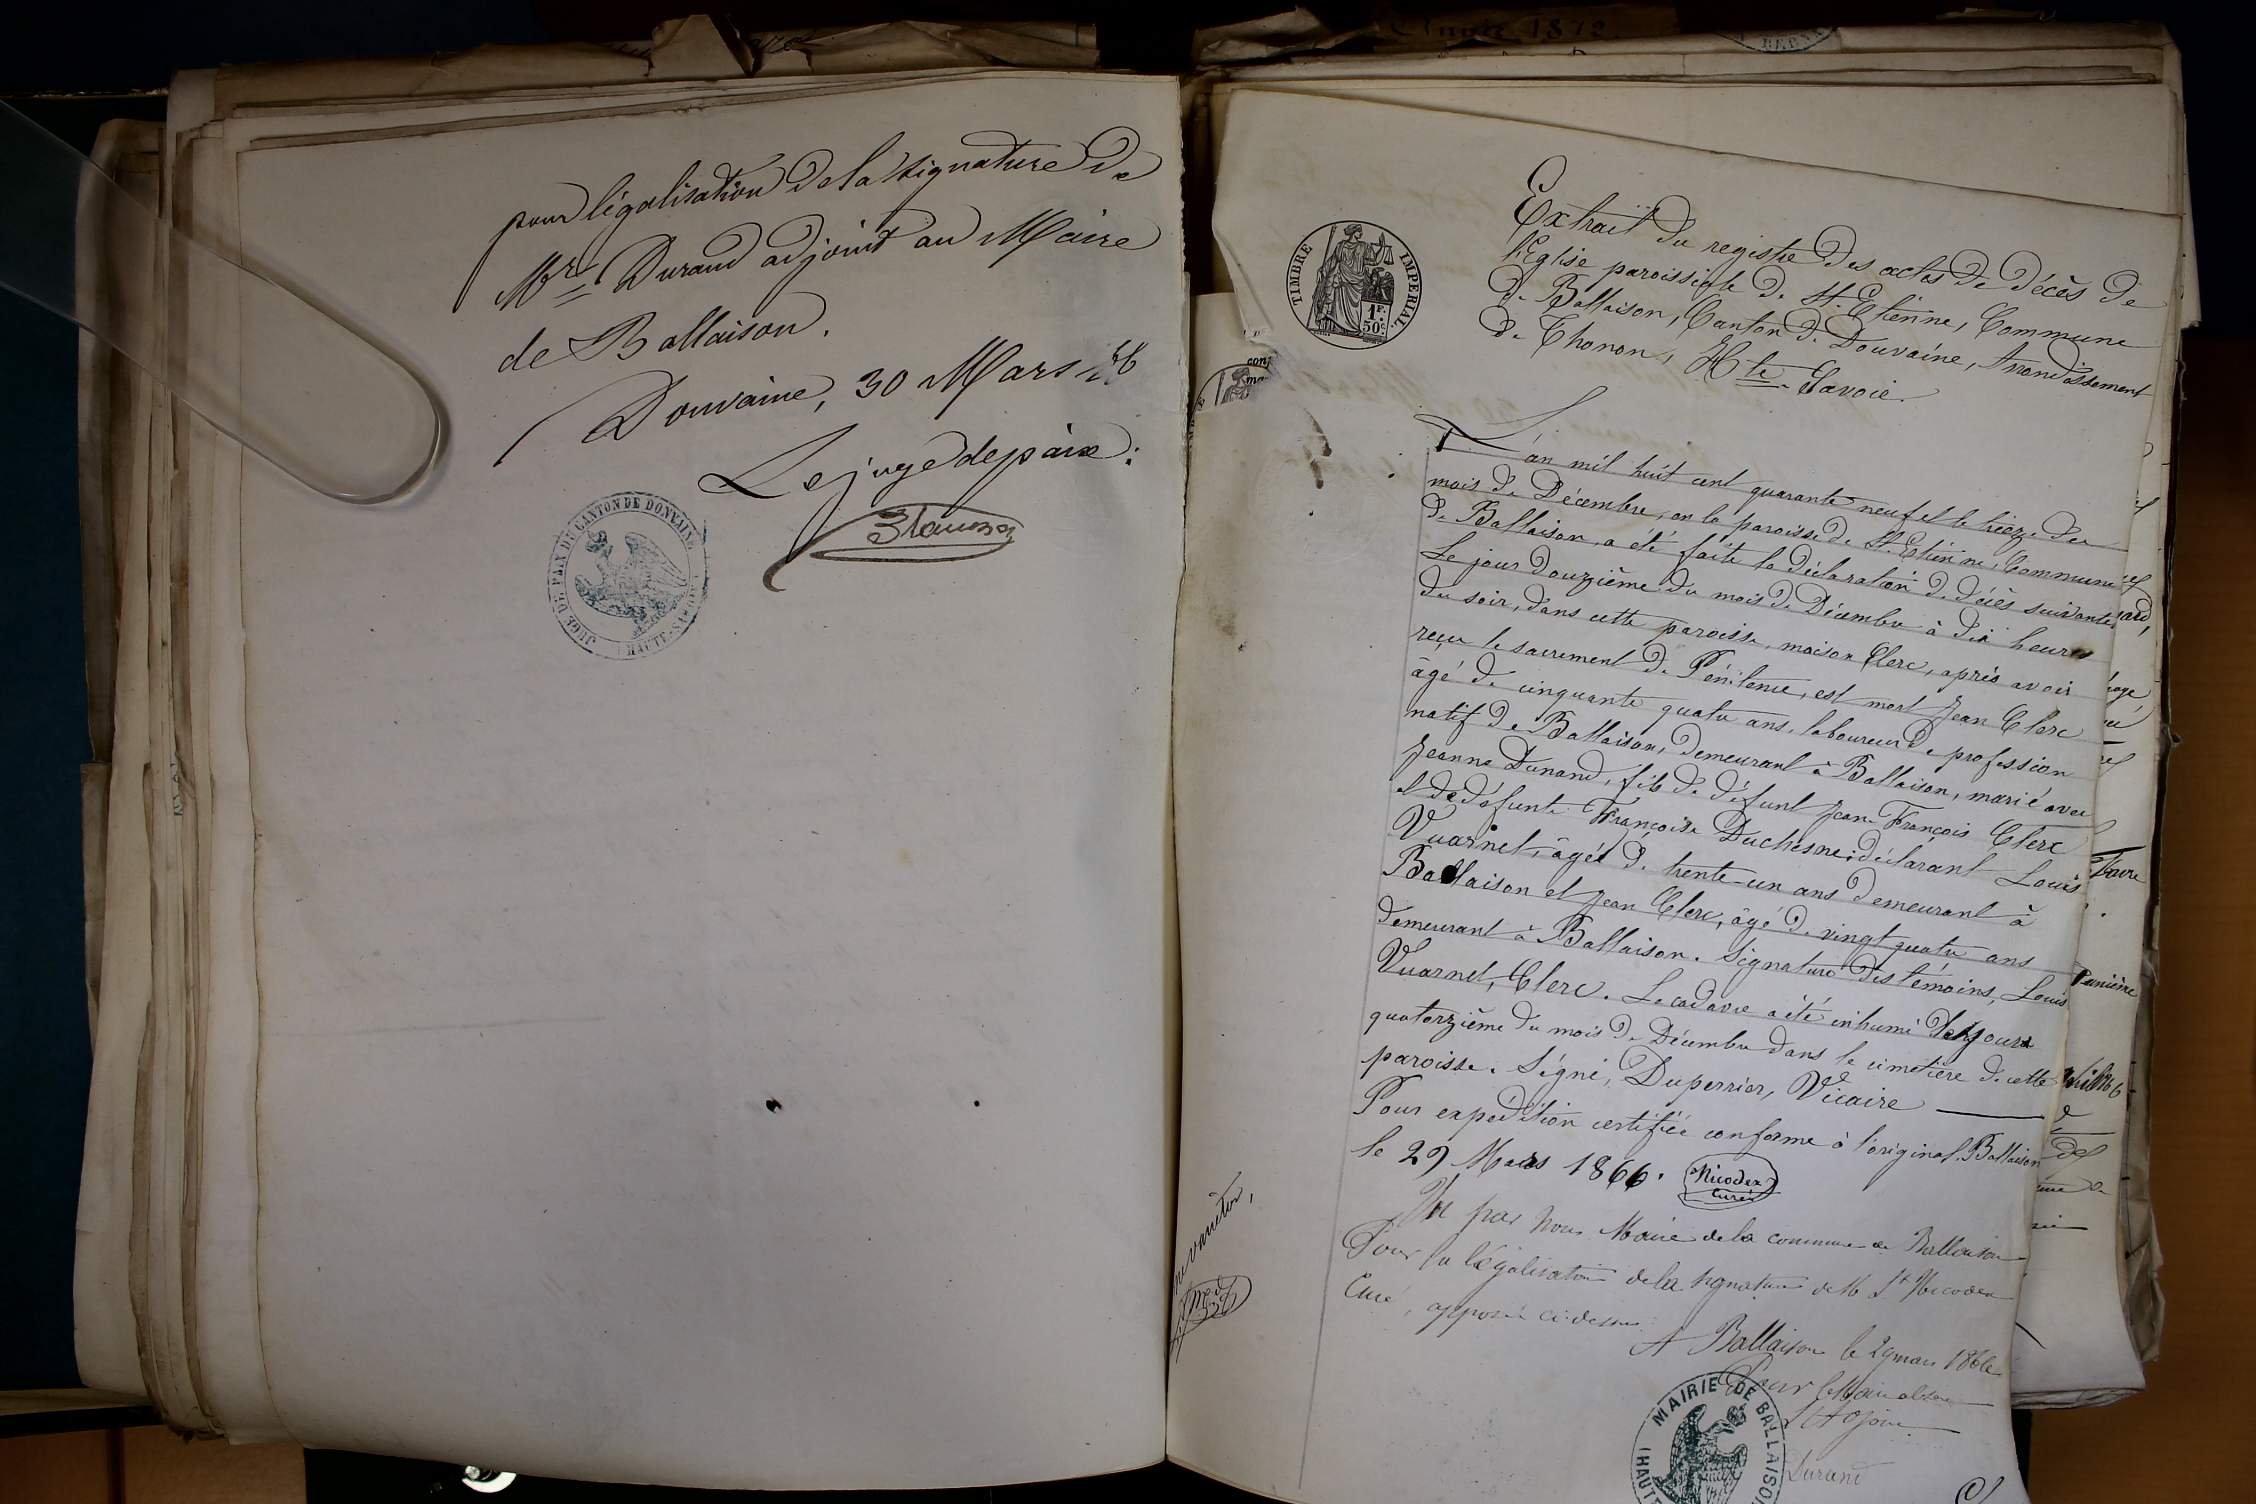 pour légalisation de la signature de
Mr Durand adjoint au Maire
de Ballaison.
Douvaine, 30 Mars 66
Le juge de paix:
JUGE DE PAIX DU CANTON DE DONVAINE
HAUTE-SAVOIE
Année 1872.
TIMBRE IMPERIAL
1F.
50c
Extrait du registre des actes de décès de
l'Eglise paroissiale de St. Etienne, Commune
de Ballaison, Canton de Douvaine, Arrondissement
de Thonon, Hte Savoie.
L'an mil huit cent quarante neuf et le treize du
mois de Décembre, en la paroisse de St. Etienne, Commune
de Ballaison, a été faite la déclaration de décès suivante.
Le jour douzième du mois de Décembre à dix heures
du soir, dans cette paroisse, maison Clerc, après avoir
reçu le sacrement de Pénitence, est mort Jean Clerc
âgé de cinquante quatre ans, laboureur de profession
natif de Ballaison, demeurant à Ballaison, marié avec
Jeanne Dunand, fils de défunt Jean François Clerc
et de défunte Françoise Duchesne; déclarant Louis
Vuarnet, âgé de trente-un ans demeurant à
Ballaison et Jean Clerc, âgé de vingt quatre ans
demeurant à Ballaison. Signature des témoins, Louis
Vuarnet, Clerc. Le cadavre a été inhumé le jour
quatorzième du mois de Décembre dans le cimetière de cette
paroisse. Signé, Duperrier, Vicaire
Pour expédition certifiée conforme à l'original. Ballaison
le 29 Mars 1866. Nicodex
Curé
Vu par Nous Maire de la commune de Ballaison
Pour la légalisation de la signature de M Nicodex
Curé, apposée ci-dessus.
A Ballaison le 29 mars 1866
Pour le Maire absent
L'Adjoint
Durand
MAIRIE DE BALLAISON
(HAUTE